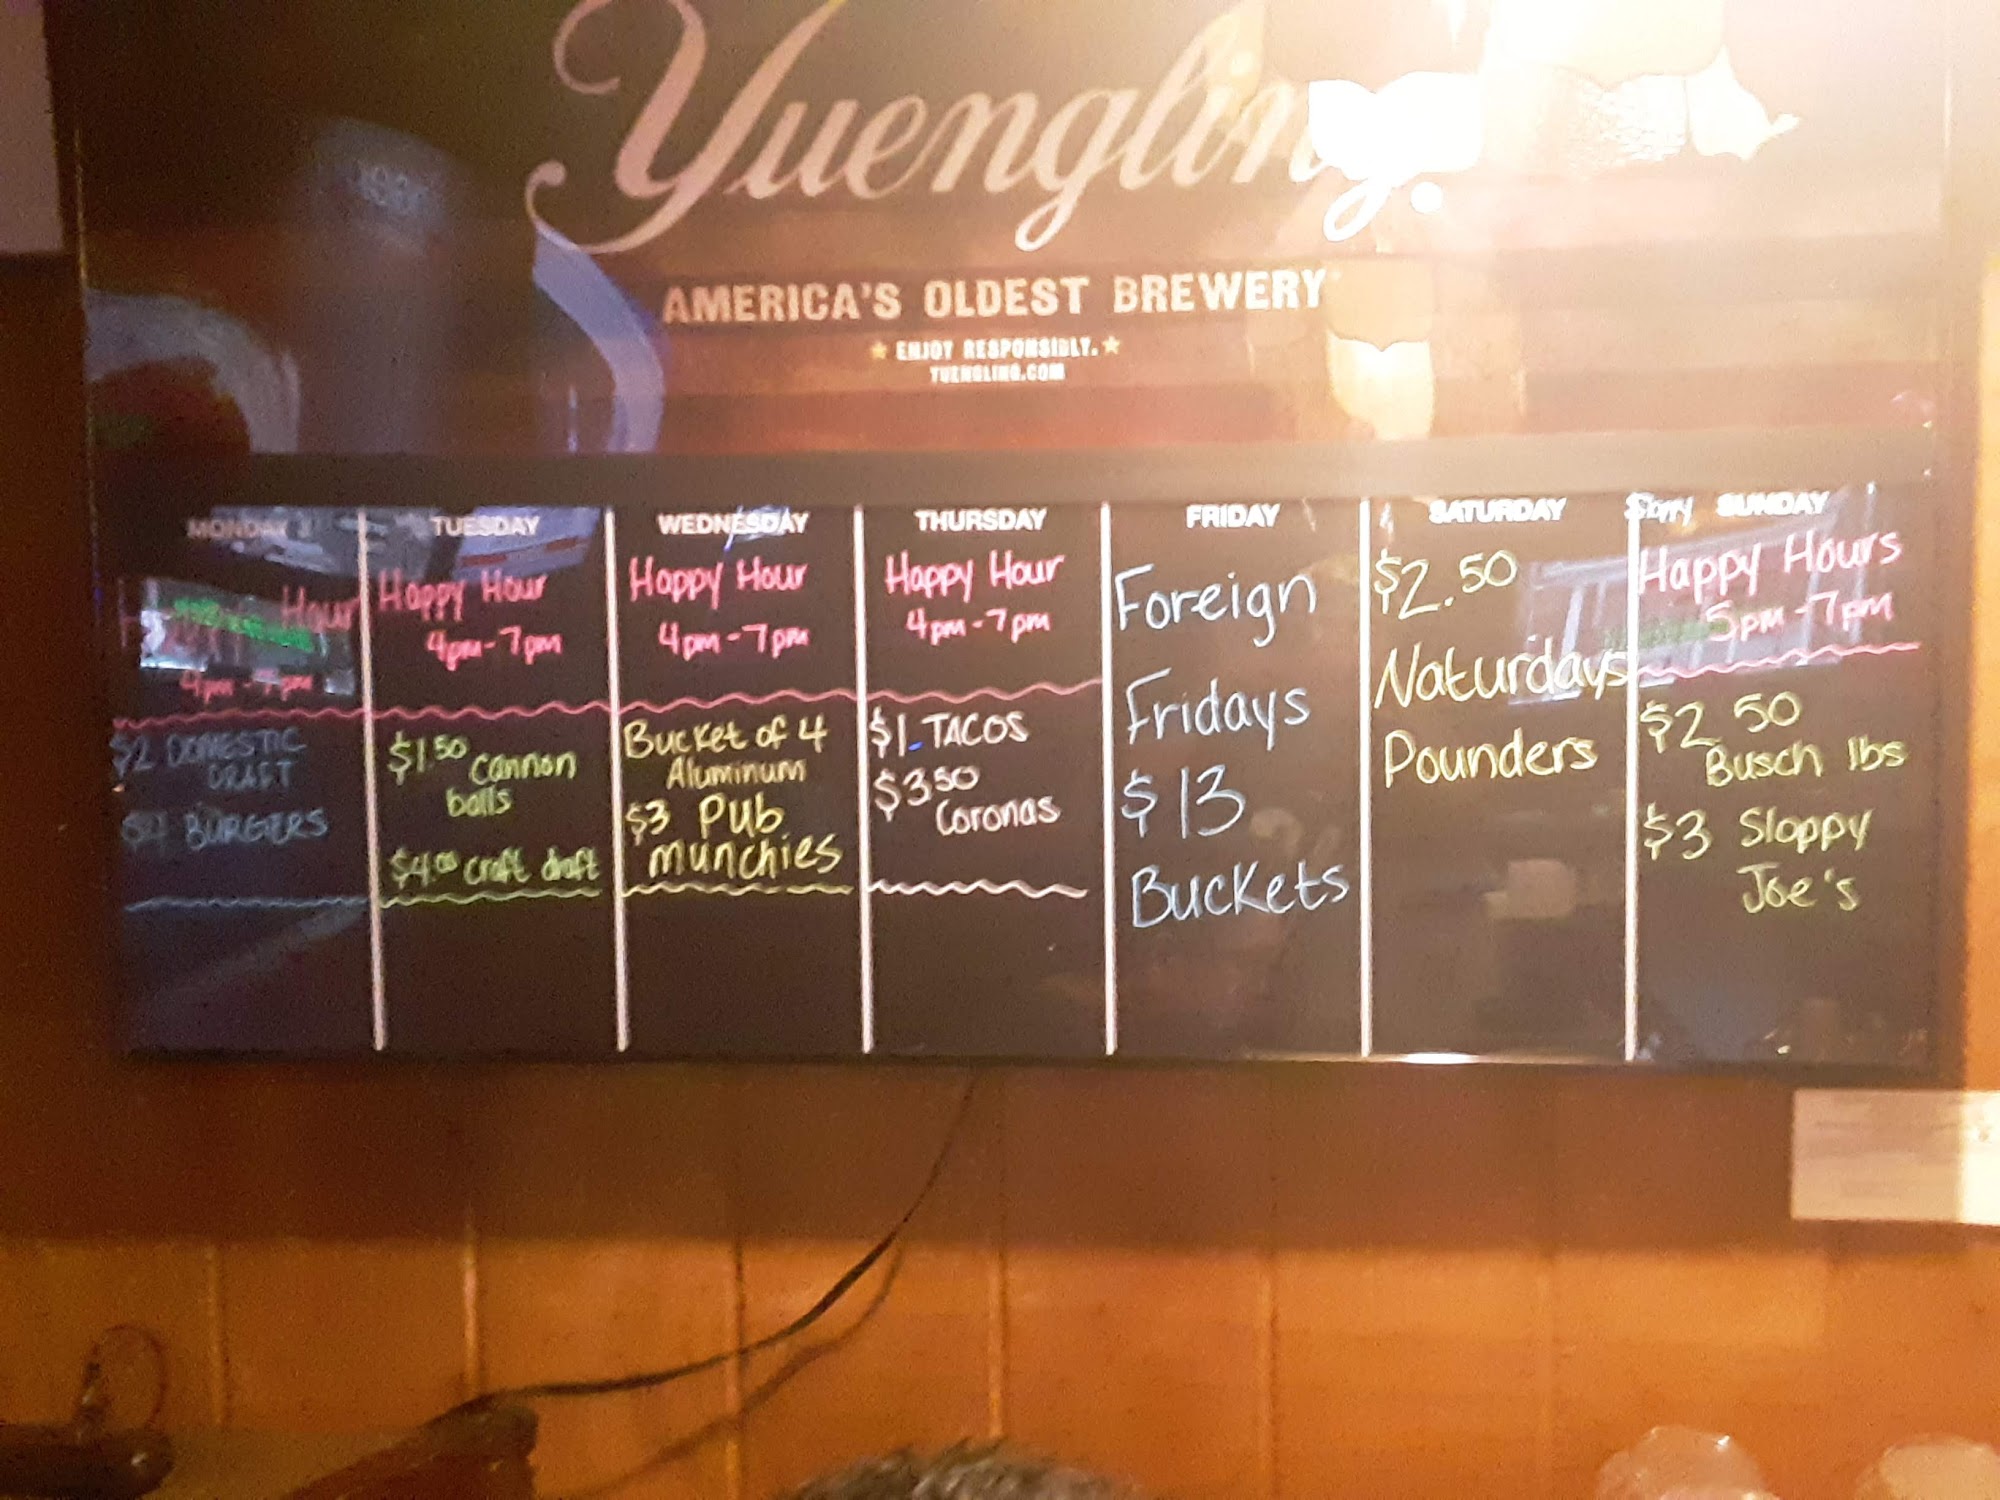 Yuengling.
AMERICA'S OLDEST BREWERY
ENJOY RESPONSIBLY.
YUENGLING.COM
MONDAY
Happy Hour
4pm-7pm
$2 DOMESTIC
DRAFT
$4 BURGERS
TUESDAY
Happy Hour
4pm-7pm
$1.50 Cannon
balls
$4.00 craft draft
WEDNESDAY
Happy Hour
4pm-7pm
Bucket of 4
Aluminum
$3 Pub
munchies
THURSDAY
Happy Hour
4pm-7pm
$1 TACOS
$3.50
Coronas
FRIDAY
Foreign
Fridays
$13
Buckets
SATURDAY
$2.50
Naturdays
Pounders
Sloppy SUNDAY
Happy Hours
5pm-7pm
$2 50
Busch lbs
$3 Sloppy
Joe's